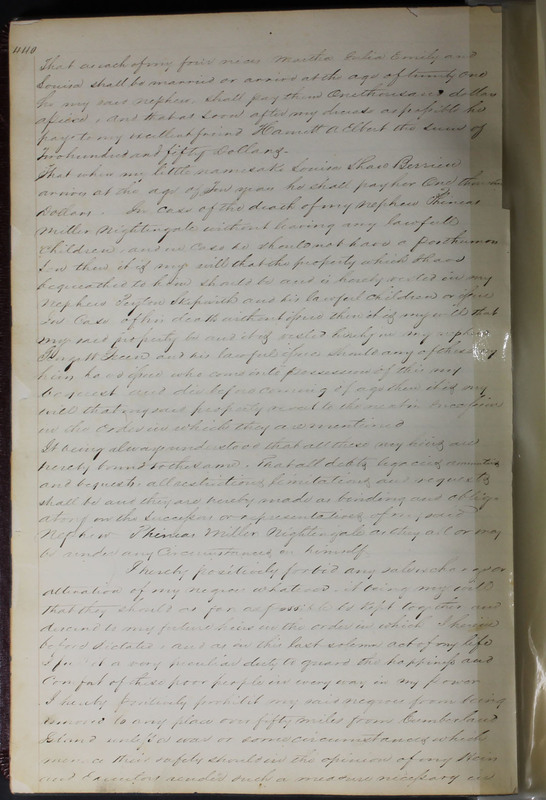 That as each of my four nieces Martha Julia Emily and
Louisa shall be married or arrive at the age of twenty one
he my said nephew shall pay them One thousand dollars
apiece, and that as soon after my decease as possible he
pay to my excellent friend Harriett A Elbert the sum of
Two hundred and fifty Dollars.
That when my little namesake Louisa Shaw Berrien
arrives at the age of Ten years he shall pay her One thousand
Dollars. In case of the death of my Nephew Phineas
Miller Nightingale without leaving any lawfull
Children, and in Case he should not have a posthumous
Son then it is my will that the property which I have
bequeathed to him should be and is hereby vested in my
Nephew and his lawful children or issue
In Case of his death without issue then it is my will that
my said property be and it is vested hereby in my nephew
and his lawful issue should any of these my
who come into possession of this my
bequest and die before coming of age then it is my
will that my said property revert to the next in Succession
in the order in which they are mentioned
It being always understood that all these my heirs are
hereby bound to the same. That all debts legacies annuities
and bequests all restrictions limitations and requests
shall be and they are hereby made as binding and oblig-
atory on the Successors or representatives of my said
Nephew Phineas Miller Nightingale as they are or may
be under any Circumstances on himself
I hereby positively forbid any sale exchange or
alienation of my negroes whatever, it being my will
that they should as far as possible be kept together and
descend to my future heirs in the order in which I herein
before dictated, and as in this last solemn act of my life
I feel it a very peculiar duty to guard the happiness and
Comfort of these poor people in every way in my power
I hereby positively prohibit my said negroes from being
removed to any place over fifty miles from Cumberland
Island unless war or some circumstances which
their safety should in the opinion of my Heirs
and Executors render such a measure necessary in